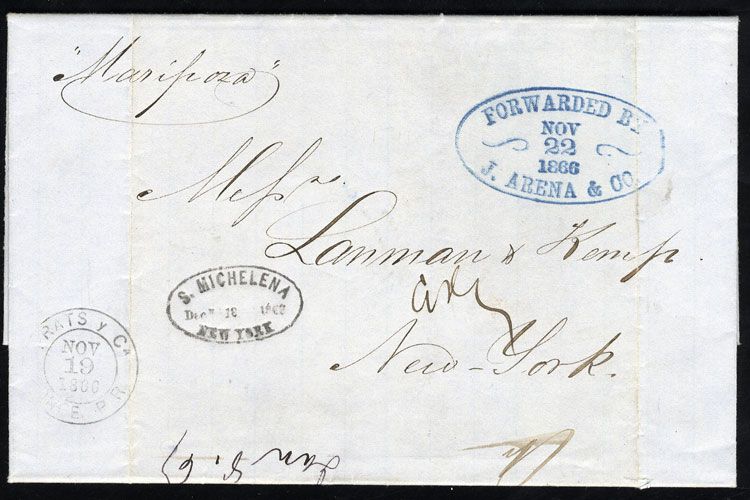 "Mariposa"
FORWARDED BY
NOV
22
1866
J. ARENA & CO.
Mess.rs
Lanman & Kemp.
New-York.
S. MICHELENA
Dec. 18 186
NEW YORK
RATS y Ca
NOV
19
1866
CE. P.R.
Jan 8. 67